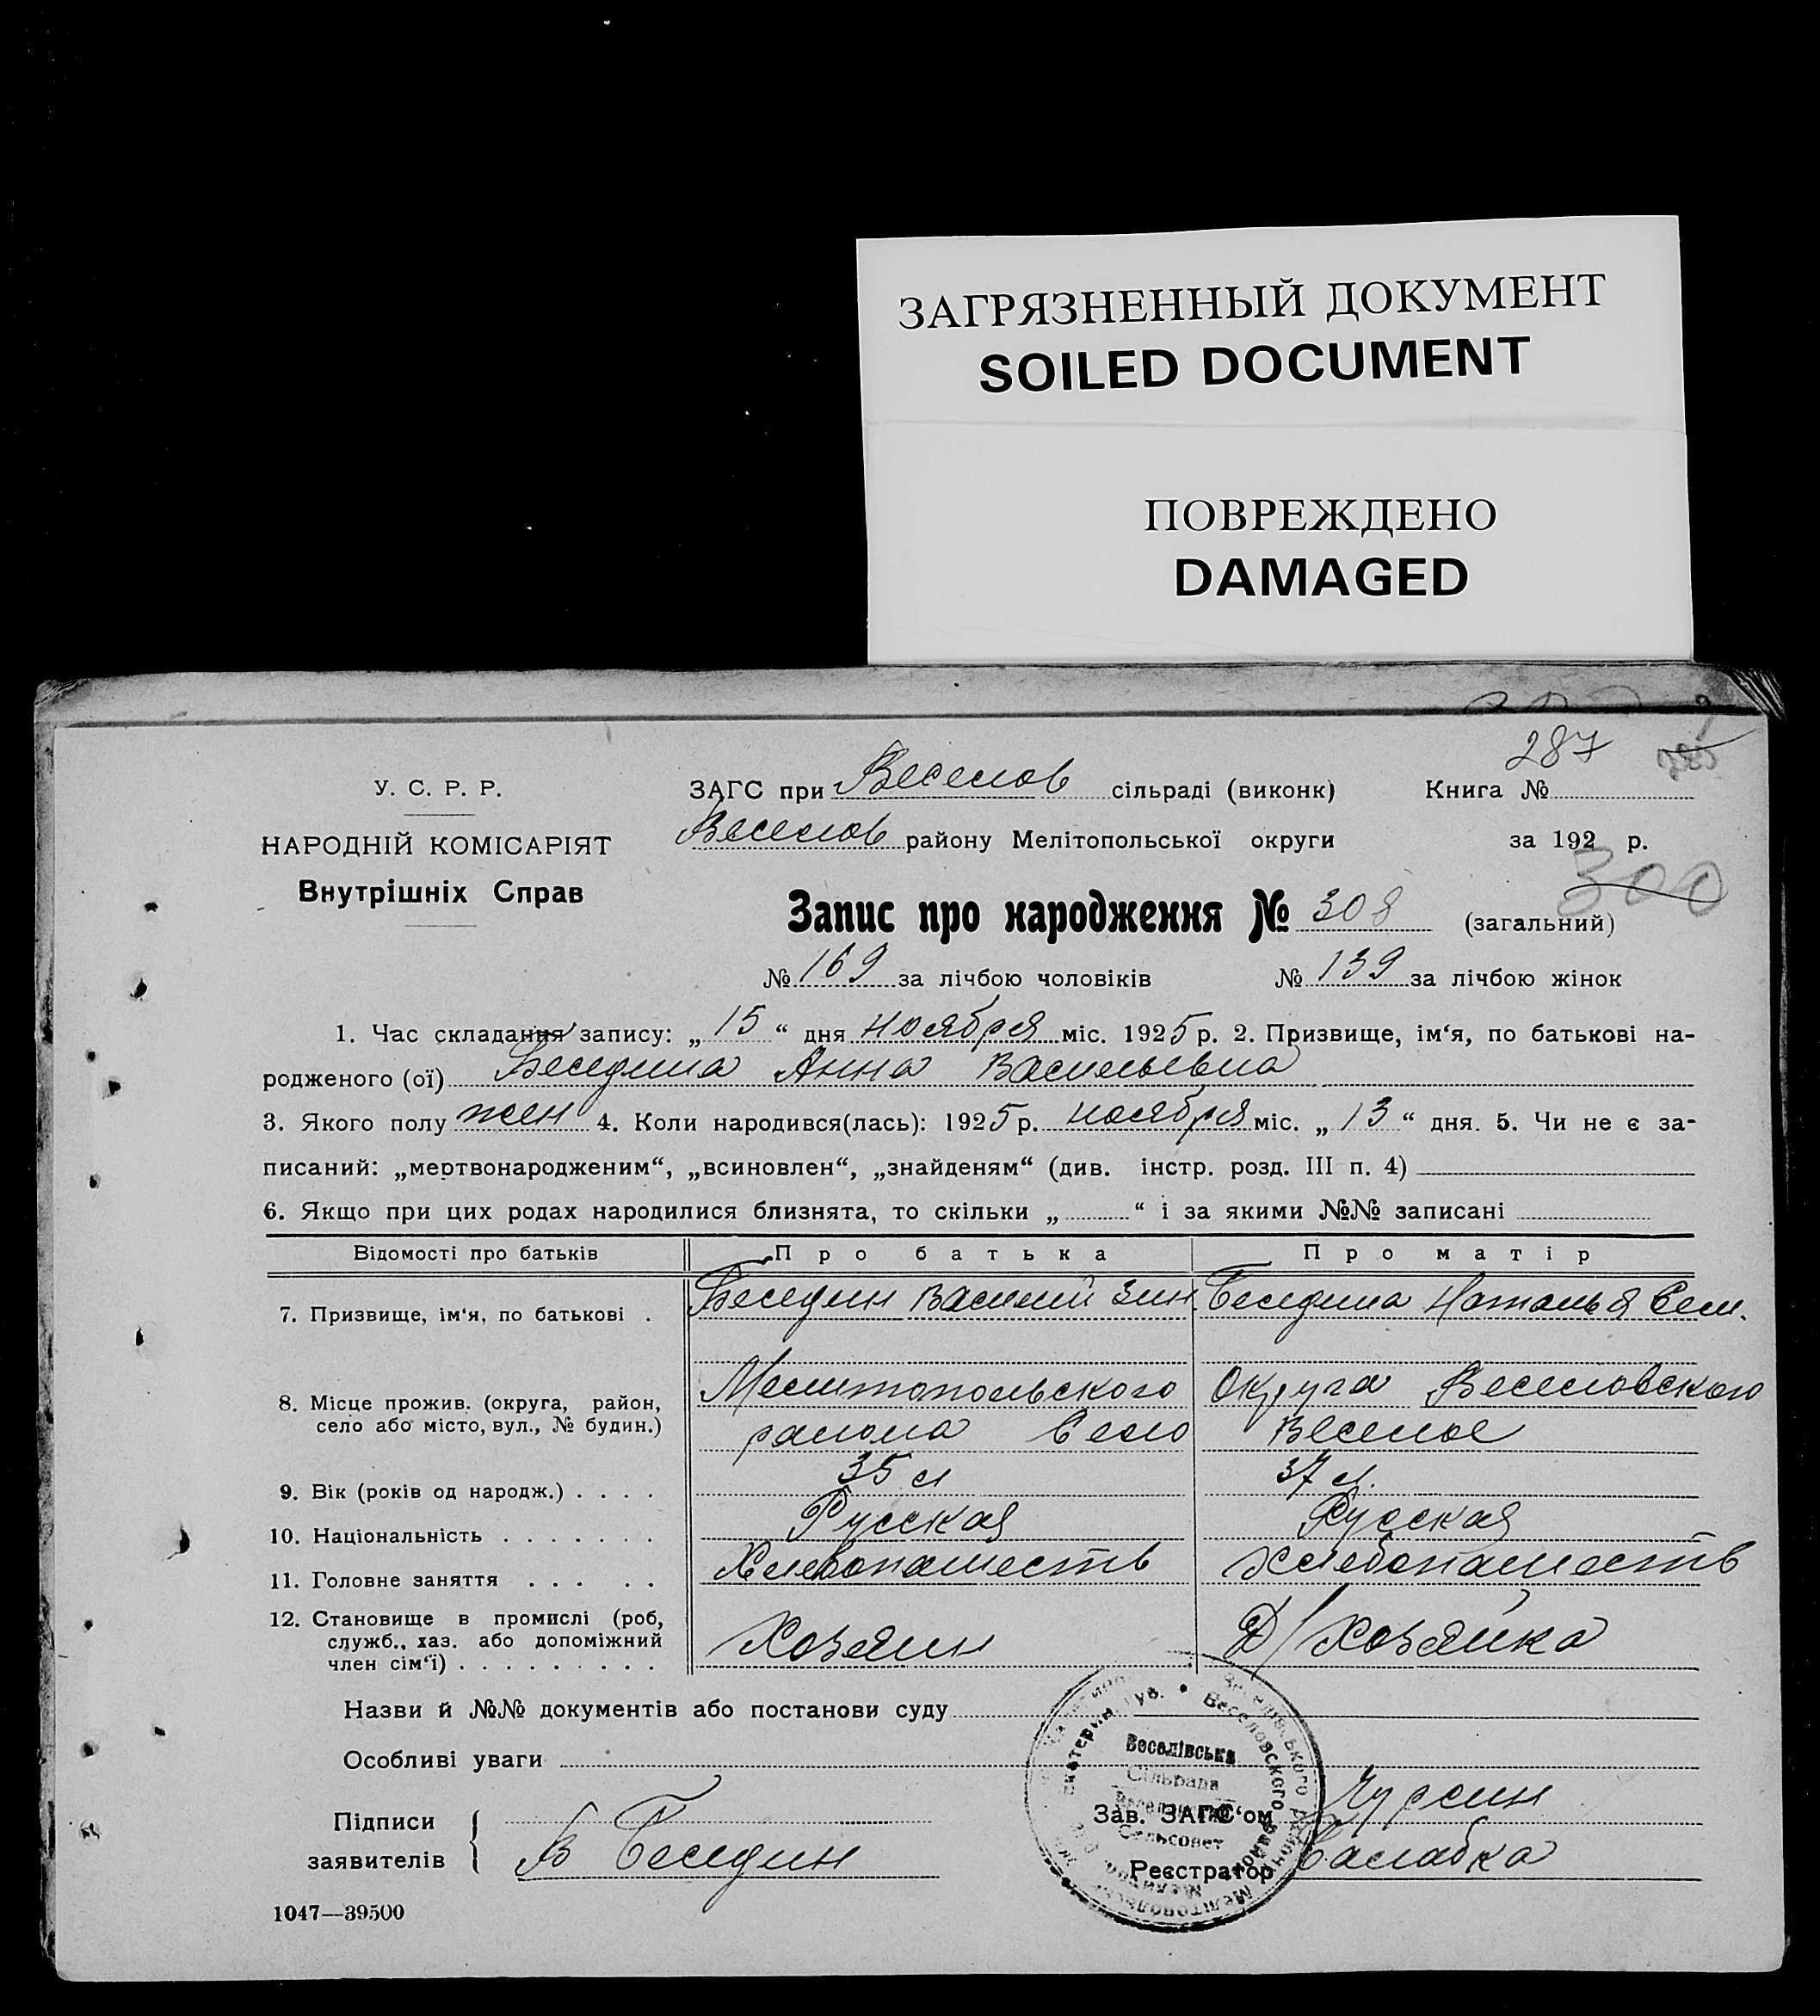 ЗАГРЯЗНЕННЫЙ ДОКУМЕНТ
SOILED DOCUMENT
ПОВРЕЖДЕНО
DAMAGED
287
У. С. Р. Р.
НАРОДНІЙ КОМІСАРІЯТ
Внутрішніх Справ
ЗАГС при Веселов сільраді (виконк) Книга №
Веселов району Мелітопольської округи за 192 р.
300
Запис про народження № 308 (загальний)
№ 169 за лічбою чоловіків № 139 за лічбою жінок
1. Час складання запису: „ 15 “ дня ноября міс. 1925 р. 2. Призвище, ім‘я, по батькові на-
родженого (ої) Беседина Анна Васильевна
3. Якого полу жен 4. Коли народився(лась): 1925 р. ноября міс. „ 13 “ дня. 5. Чи не є за-
писаний: „мертвонародженим“, „всиновлен“, „знайденям“ (див. інстр. розд. III п. 4)
6. Якщо при цих родах народилися близнята, то скільки „ “ і за якими №№ записані
Відомості про батьків Про батька Про матір
7. Призвище, ім‘я, по батькові . Беседин Василий Зин. Беседина Наталья Сем.
8. Місце прожив. (округа, район, Мелитопольского Округа Веселовского
село або місто, вул., № будин.) района Село Веселое
9. Вік (років од народж.) . . . . 35 л 37 л.
10. Національність . . . . . . . Русская Русская
11. Головне заняття . . . . . Хлебопашеств Хлебопашеств
12. Становище в промислі (роб,
служб., хаз. або допоміжний Хозяин Д/Хозяйка
член сім‘ї) . . . . . . . . .
Назви й №№ документів або постанови суду
Особливі уваги
Веселівська
Сільрада
Сельсовет
Веселовского
Підписи
заявителів В Беседин
Зав. ЗАГС‘ом
Реєстратор
1047—39500